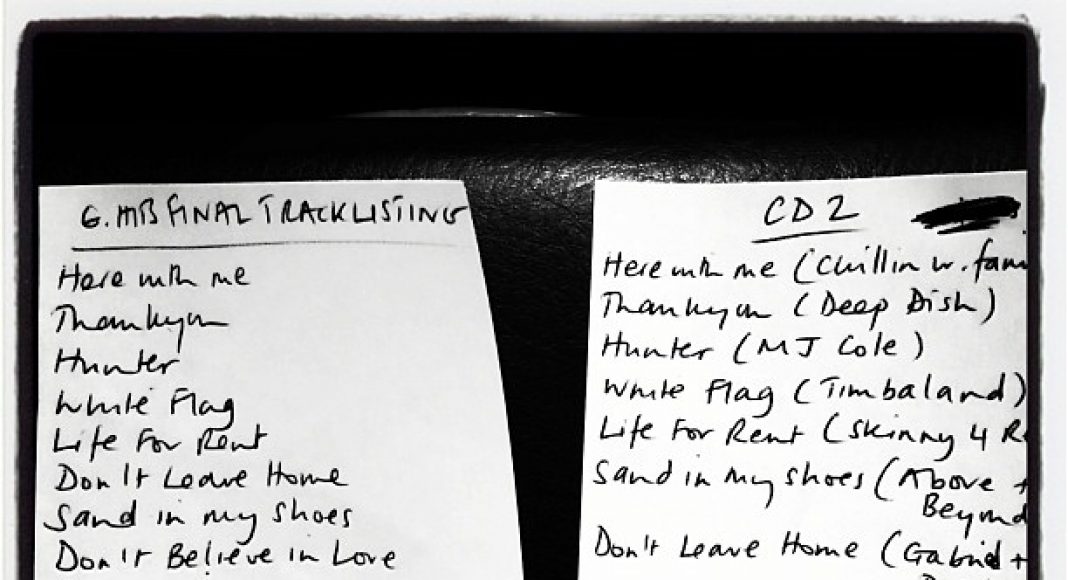 G. HITS FINAL TRACKLISTING
Here with me
Thankyou
Hunter
White Flag
Life For Rent
Don't Leave Home
Sand in my Shoes
Don't Believe in Love
CD2
Here with me (Chillin w. fam
Thankyou (Deep Dish)
Hunter (MJ Cole)
White Flag (Timbaland)
Life For Rent (Skinny 4 R
Sand in my shoes (Above +
Beyond
Don't Leave Home (Gabriel +